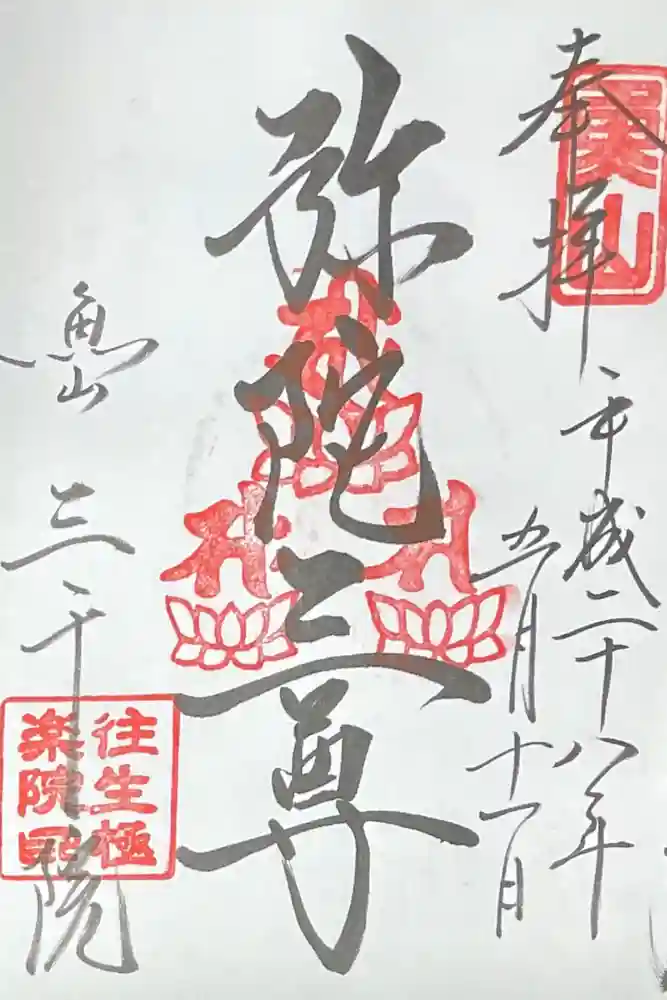 奉拝
平成二十八年
五月十一日
弥陀三尊
魚山
三千院
往生極
楽院印